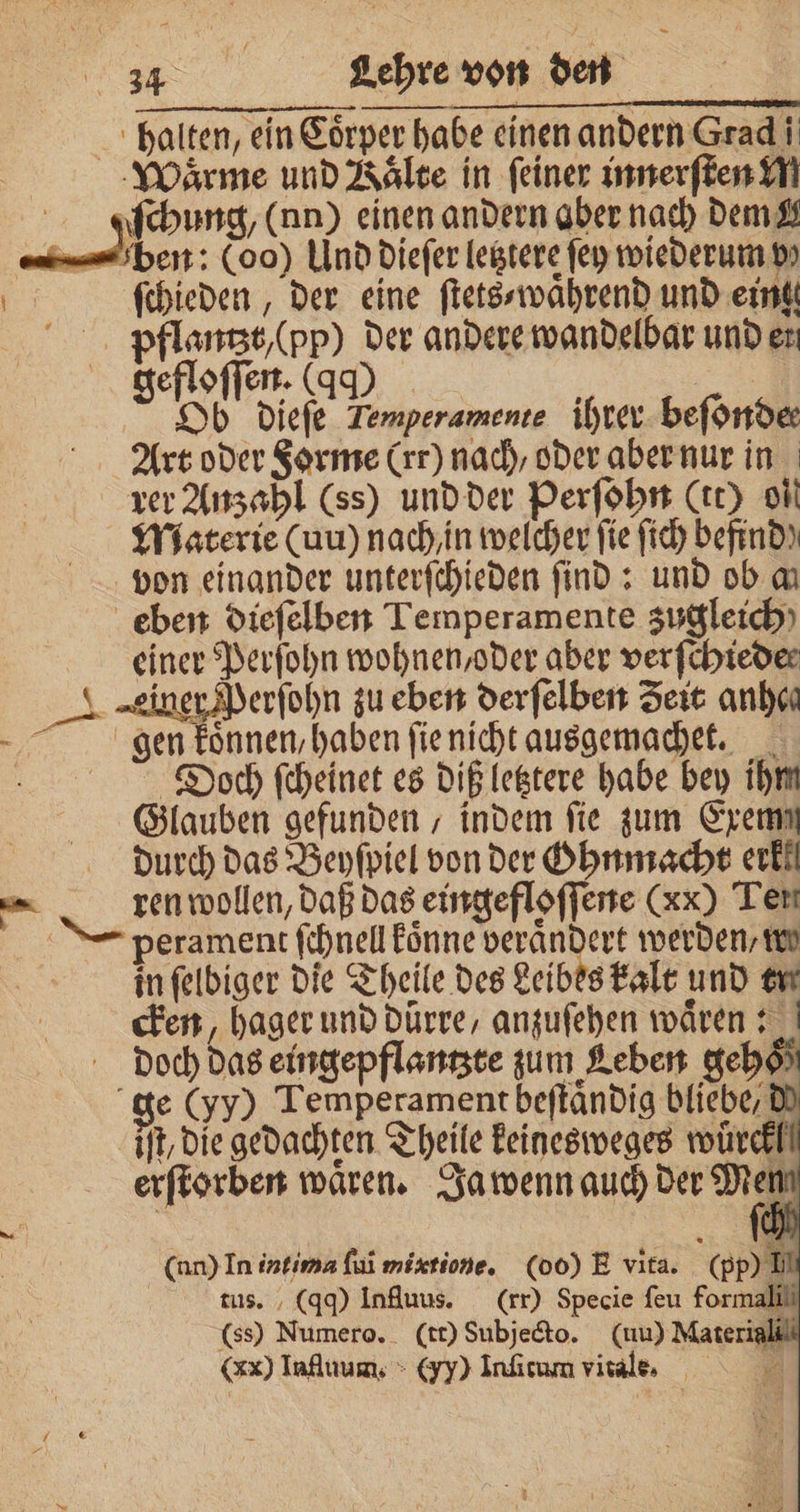 34 Lehre von den
halten, ein Cörper habe einen andern Grad i
Wärme und Kälte in ſeiner innerſten M
ſchung, (nn) einen andern aber nach dem L
ben: (oo) Und dieſer letztere ſey wiederum v
ſchieden, der eine ſtets-während und eing
pflantzt, (pp) der andere wandelbar und ei
gefloſſen. (qq)
Ob dieſe Temperamente ihrer beſonde
Art oder Forme (rr) nach, oder aber nur in
rer Anzahl (ss) und der Perſohn (tt) o
Materie (uu) nach, in welcher ſie ſich befind
von einander unterſchieden ſind: und ob a
eben dieſelben Temperamente zugleich
einer Perſohn wohnen, oder aber verſchiede
einer Perſohn zu eben derſelben Zeit anha
gen können, haben ſie nicht ausgemachet.
Doch ſcheinet es diß letztere habe bey ihn
Glauben gefunden, indem ſie zum Exem
durch das Beyſpiel von der Ohnmacht erkl
ren wollen, daß das eingefloſſene (xx) Tem
perament ſchnell könne verändert werden, w
in ſelbiger die Theile des Leibes kalt und tr
cken, hager und dürre, anzuſehen wären:
doch das eingepflantzte zum Leben gehö
ge (yy) Temperament beſtändig bliebe, d
iſt, die gedachten Theile keinesweges würckl
erſtorben wären. Ja wenn auch der Men
ſch
(nn) In intima ſui mixtione. (oo) E vita. (pp) I
tus. (qq) Influus. (rr) Specie ſeu formali
(ss) Numero. (tt) Subjecto. (uu) Materiali
(xx) Influum. (yy) Inſitum vitale.